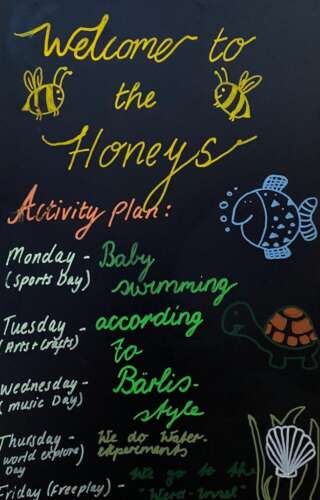 Welcome to
the
Honeys
Activity plan:
Monday - Baby
(Sports Day) swimming
Tuesday - according
(Arts + Crafts) to
Wednesday - Bärlis-
(music Day) style
Thursday - We do Water-
world explore experiments
Day
Friday (Freeplay) - We go to the